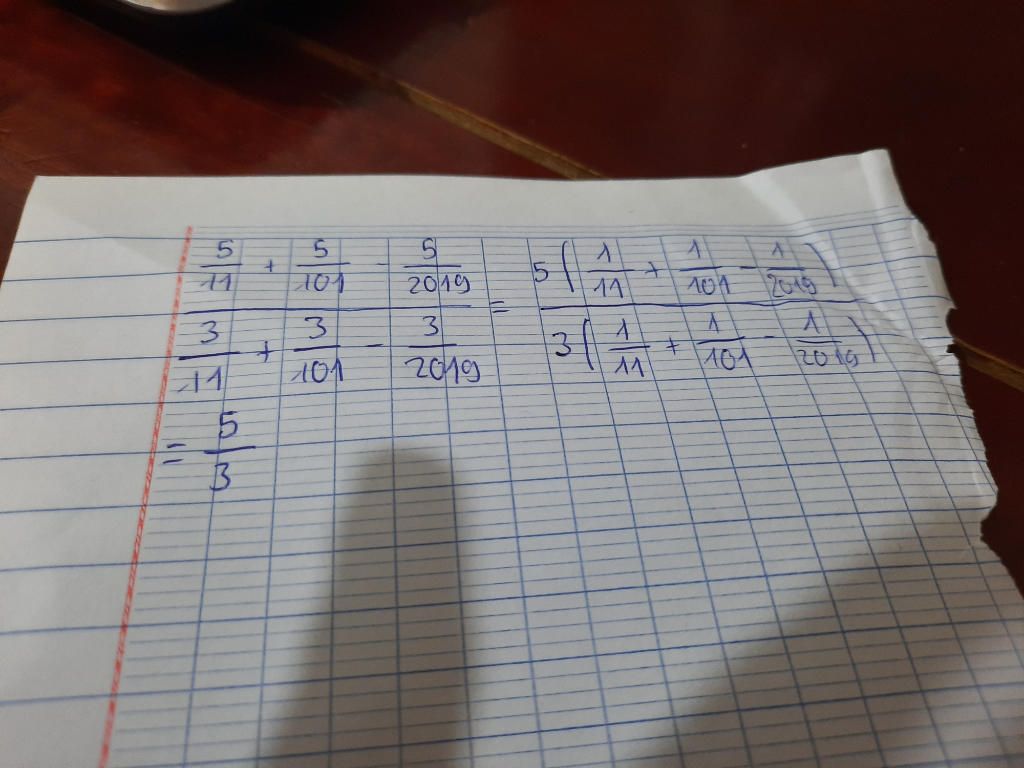 5/11 + 5/101 - 5/2019 = 5(1/11 + 1/101 - 1/2019)
3/11 + 3/101 - 3/2019 3(1/11 + 1/101 - 1/2019)
= 5/3